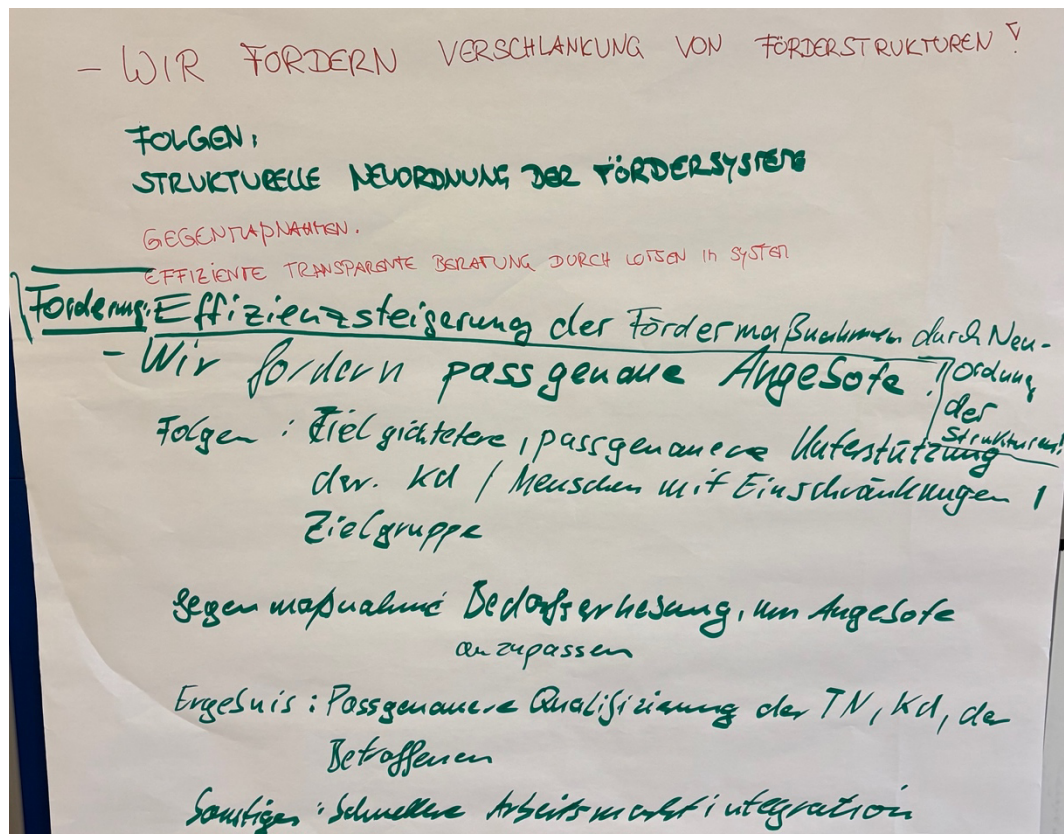 - WIR FORDERN VERSCHLANKUNG VON FÖRDERSTRUKTUREN!
FOLGEN:
STRUKTURELLE NEUORDNUNG DER FÖRDERSYSTEME
GEGENMAßNAHMEN.
EFFIZIENTE TRANSPARENTE BERATUNG DURCH LOTSEN IM SYSTEM
Forderung: Effizienzsteigerung der Fördermaßnahmen durch Neu-
ordnung
der
Strukturen!
- Wir fordern passgenaue Angebote!
Folgen: Zielgichtetere, passgenauere Unterstützung
der. Kd / Menschen mit Einschränkungen /
Zielgruppe
Gegenmaßnahme Bedarfserhebung, um Angebote
anzupassen
Ergebnis: Passgenauere Qualifizierung der TN, Kd, der
Betroffenen
Sonstiges: Schnellere Arbeitsmarktintegration